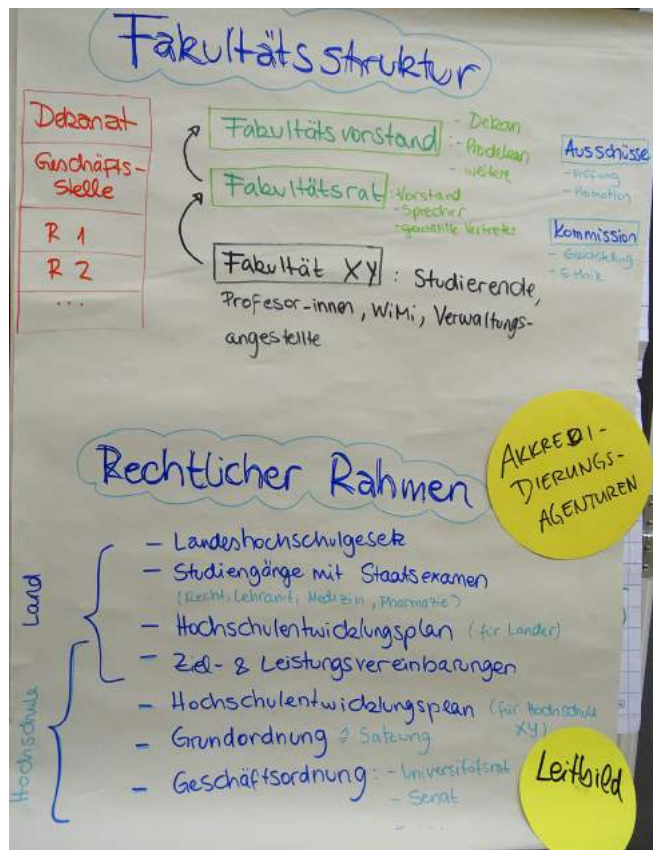 Fakultätsstruktur
Dekanat
Geschäfts-
stelle
R 1
R 2
...
Fakultätsvorstand
- Dekan
- Prodekan
- weitere
Fakultätsrat
: Vorstand
- Sprecher
- gewählte Vertreter
Fakultät XY : Studierende,
Profesor-innen, WiMi, Verwaltungs-
angestellte
Ausschüsse
- Prüfung
- Promotion
Kommission
- Ethik
Rechtlicher Rahmen
AKKREDI-
DIERUNGS-
AGENTUREN
Land
- Landeshochschulgesetz
- Studiengänge mit Staatsexamen
(Recht, Lehramt, Medizin, Pharmazie)
- Hochschulentwicklungsplan (für Länder)
- Ziel- & Leistungsvereinbarungen
Hochschule
- Hochschulentwicklungsplan (für Hochschule
XY)
- Grundordnung Satzung
- Geschäftsordnung : - Universitätsrat
- Senat
- ...
Leitbild